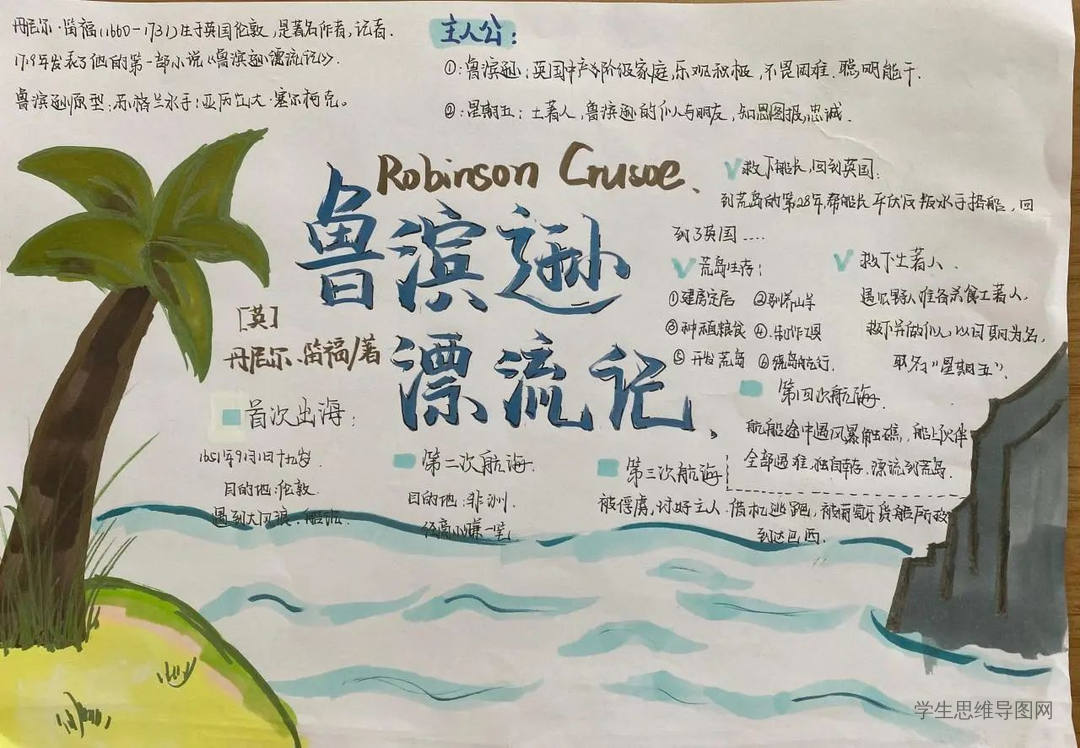 丹尼尔·笛福(1660-1731)生于英国伦敦,是著名作者,记者.
1719年发表了他的第一部小说《鲁滨逊漂流记》.
鲁滨逊原型:苏格兰水手:亚历山大·塞尔柯克。
主人公:
①:鲁滨逊:英国中产阶级家庭,乐观积极,不畏困难.聪明能干.
②:星期五:土著人,鲁滨逊的仆人与朋友,知恩图报,忠诚.
Robinson Crusoe、
鲁滨逊
漂流记、
[英]
丹尼尔.笛福/著
√救下船长,回到英国:
到荒岛的第28年,帮船长平伏反叛水手投船,回
到了英国....
√荒岛生存:
①建房定居 ②驯养山羊
③种植粮食 ④.制作工具
⑤开发荒岛 ⑥绕岛航行.
√救下土著人.
遇见野人准备杀食土著人,
救下并做仆人,以日期为名,
取名"星期五".
首次出海:
1651年9月1日十九岁.
目的地:伦敦.
遇到大风浪.船沉.
第二次航海.
目的地:非洲.
经商小赚一笔
第三次航海
被俘虏,讨好主人.借机逃跑,被葡萄牙货船所救
到达巴西.
第四次航海.
航船途中遇风暴触礁,船上伙伴
全部遇难.独自幸存.漂流到荒岛.
学生思维导图网